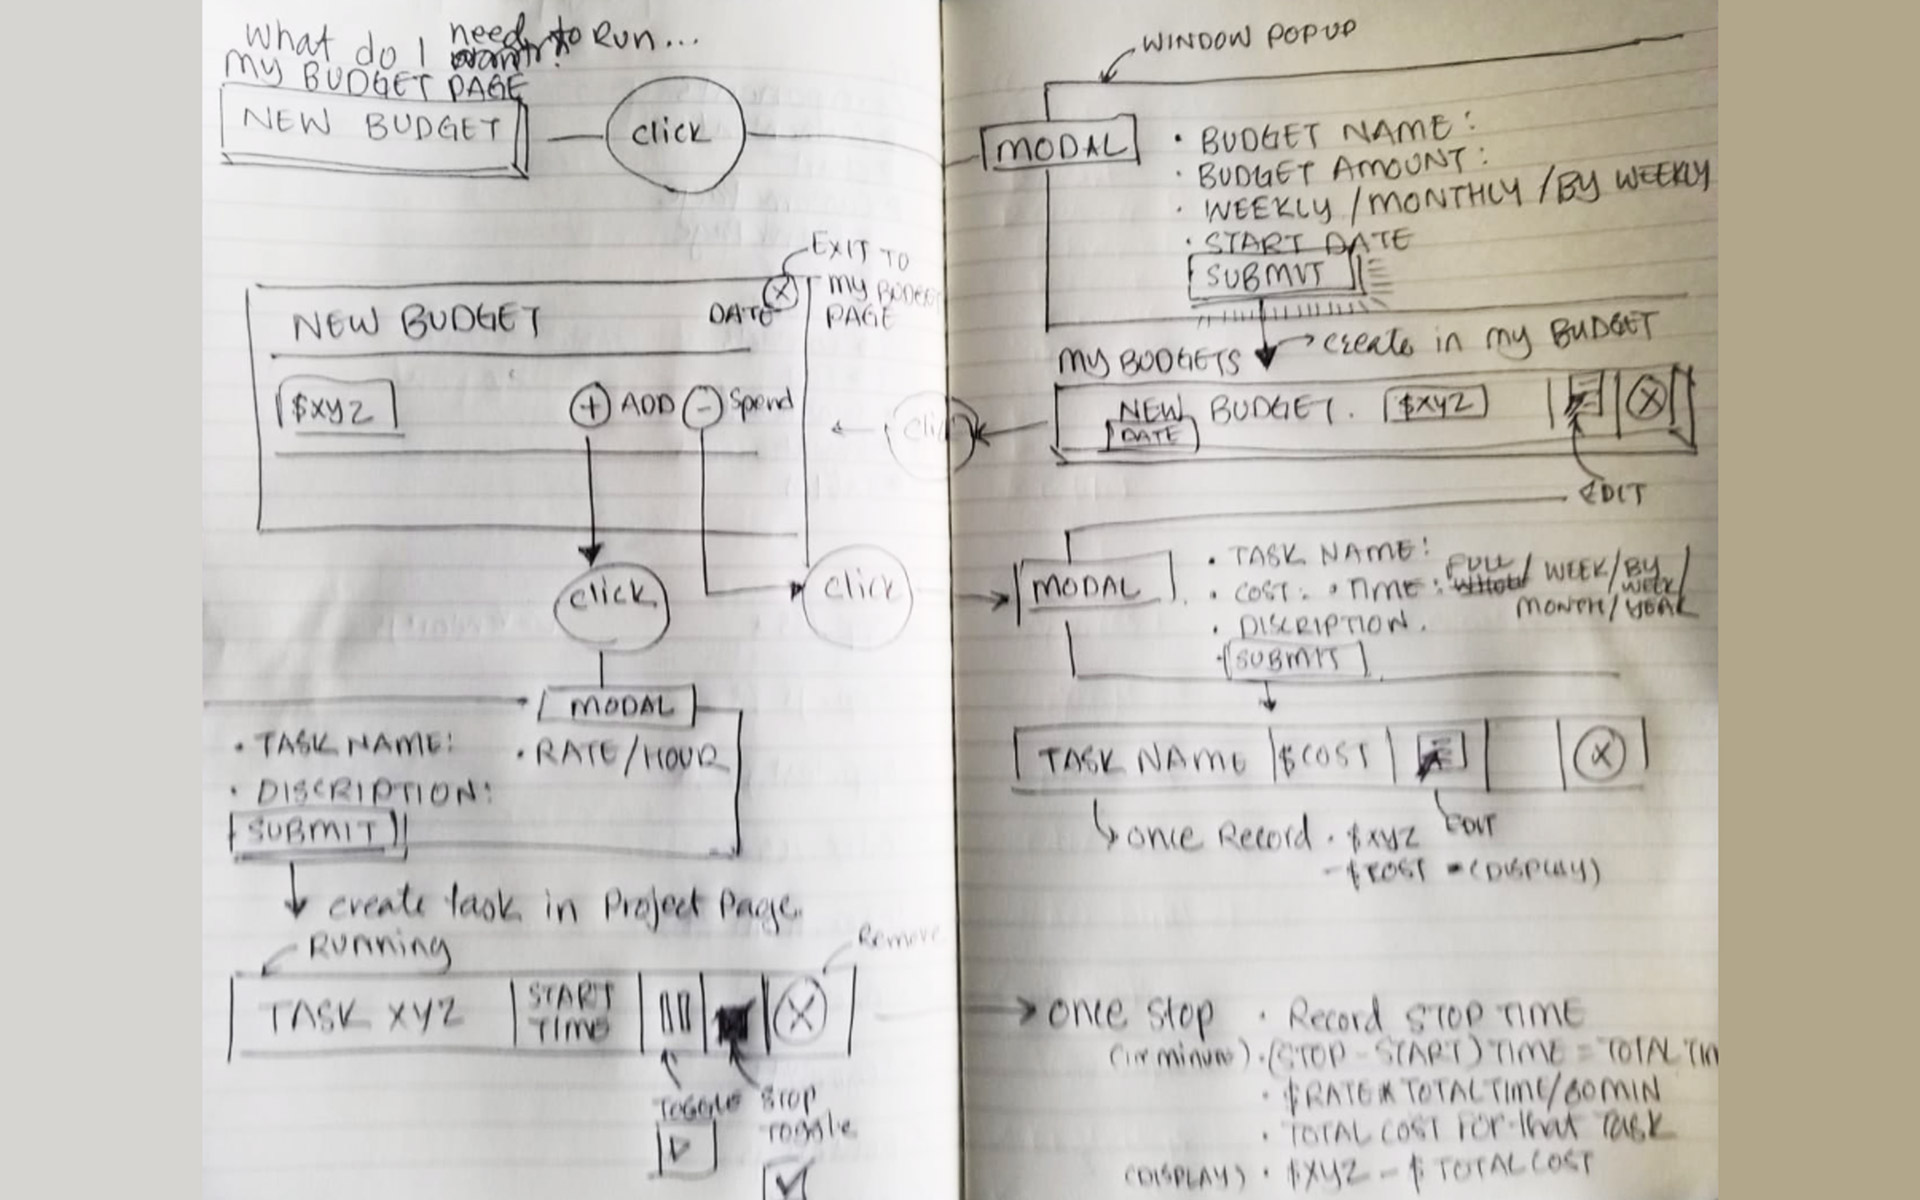 What do I need to Run...
MY BUDGET PAGE
NEW BUDGET
click
EXIT TO
MY BUDGET
PAGE
NEW BUDGET
DATE
X
$XYZ
+ ADD - Spend
click
click
MODAL
• TASK NAME:
• RATE/HOUR
• DISCRIPTION:
SUBMIT
create task in Project Page
Running
Remove
TASK XYZ
START
TIME
X
TOGGLE
STOP
Toggle
WINDOW POPUP
MODAL
• BUDGET NAME:
• BUDGET AMOUNT:
• WEEKLY / MONTHLY / BY WEEKLY
• START DATE
SUBMIT
create in my BUDGET
MY BUDGETS
NEW BUDGET. $XYZ
X
DATE
click
EDIT
MODAL
• TASK NAME:
• COST: • TIME: FULL / WEEK/BY
WEEK/
MONTH/YEAR
• DISCRIPTION.
• SUBMIT
TASK NAME $COST
X
EDIT
once Record • $XYZ
- $COST = (DISPLAY)
once stop • Record STOP TIME
• (STOP - START) TIME = TOTAL TIM
• $RATE * TOTAL TIME/60MIN
• TOTAL COST FOR that TASK
(DISPLAY) • $XYZ - $ TOTAL COST